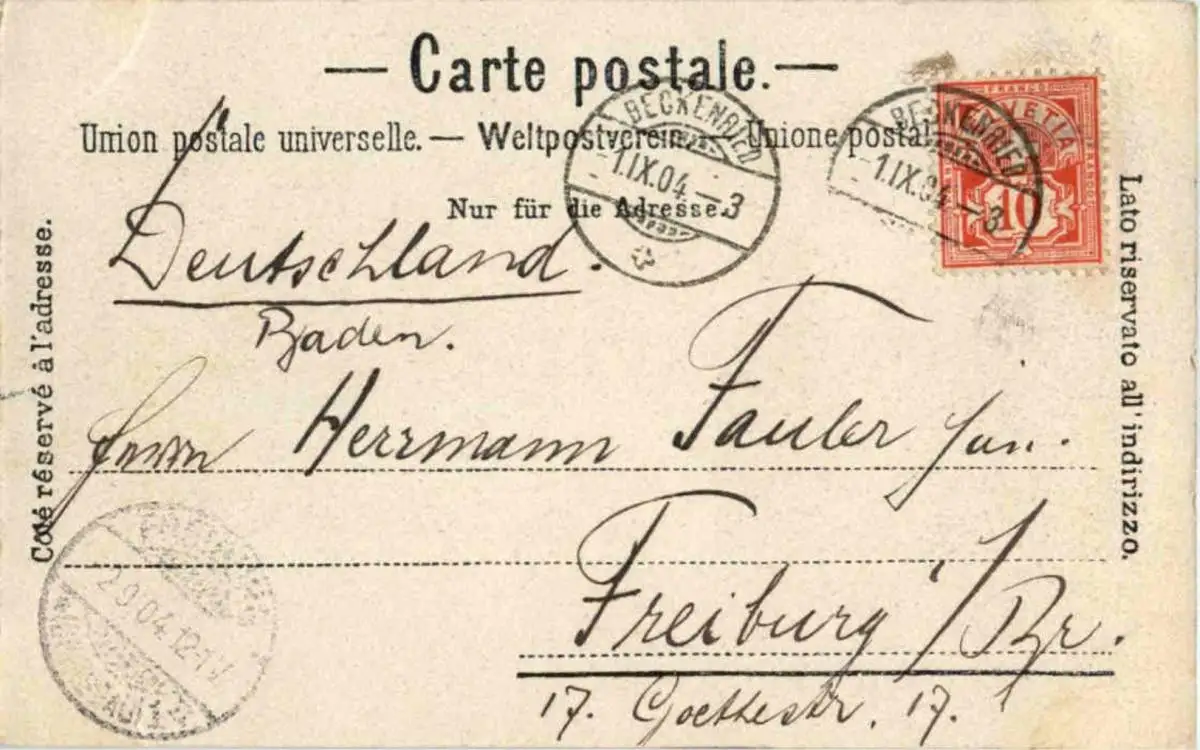 — Carte postale. —
Union postale universelle. — Weltpostverein. — Unione postal
Nur für die Adresse.
Côté réservé à l'adresse.
Lato riservato all'indirizzo.
BECKENRIED
1.IX.04–3
BECKENRIED
1.IX.04–3
FRANCO
HELVETIA
10
Deutschland.
Baden.
Herrn Herrmann Fauler jun.
Freiburg i/Br.
17. Goethestr. 17.
2.9.04.12-1